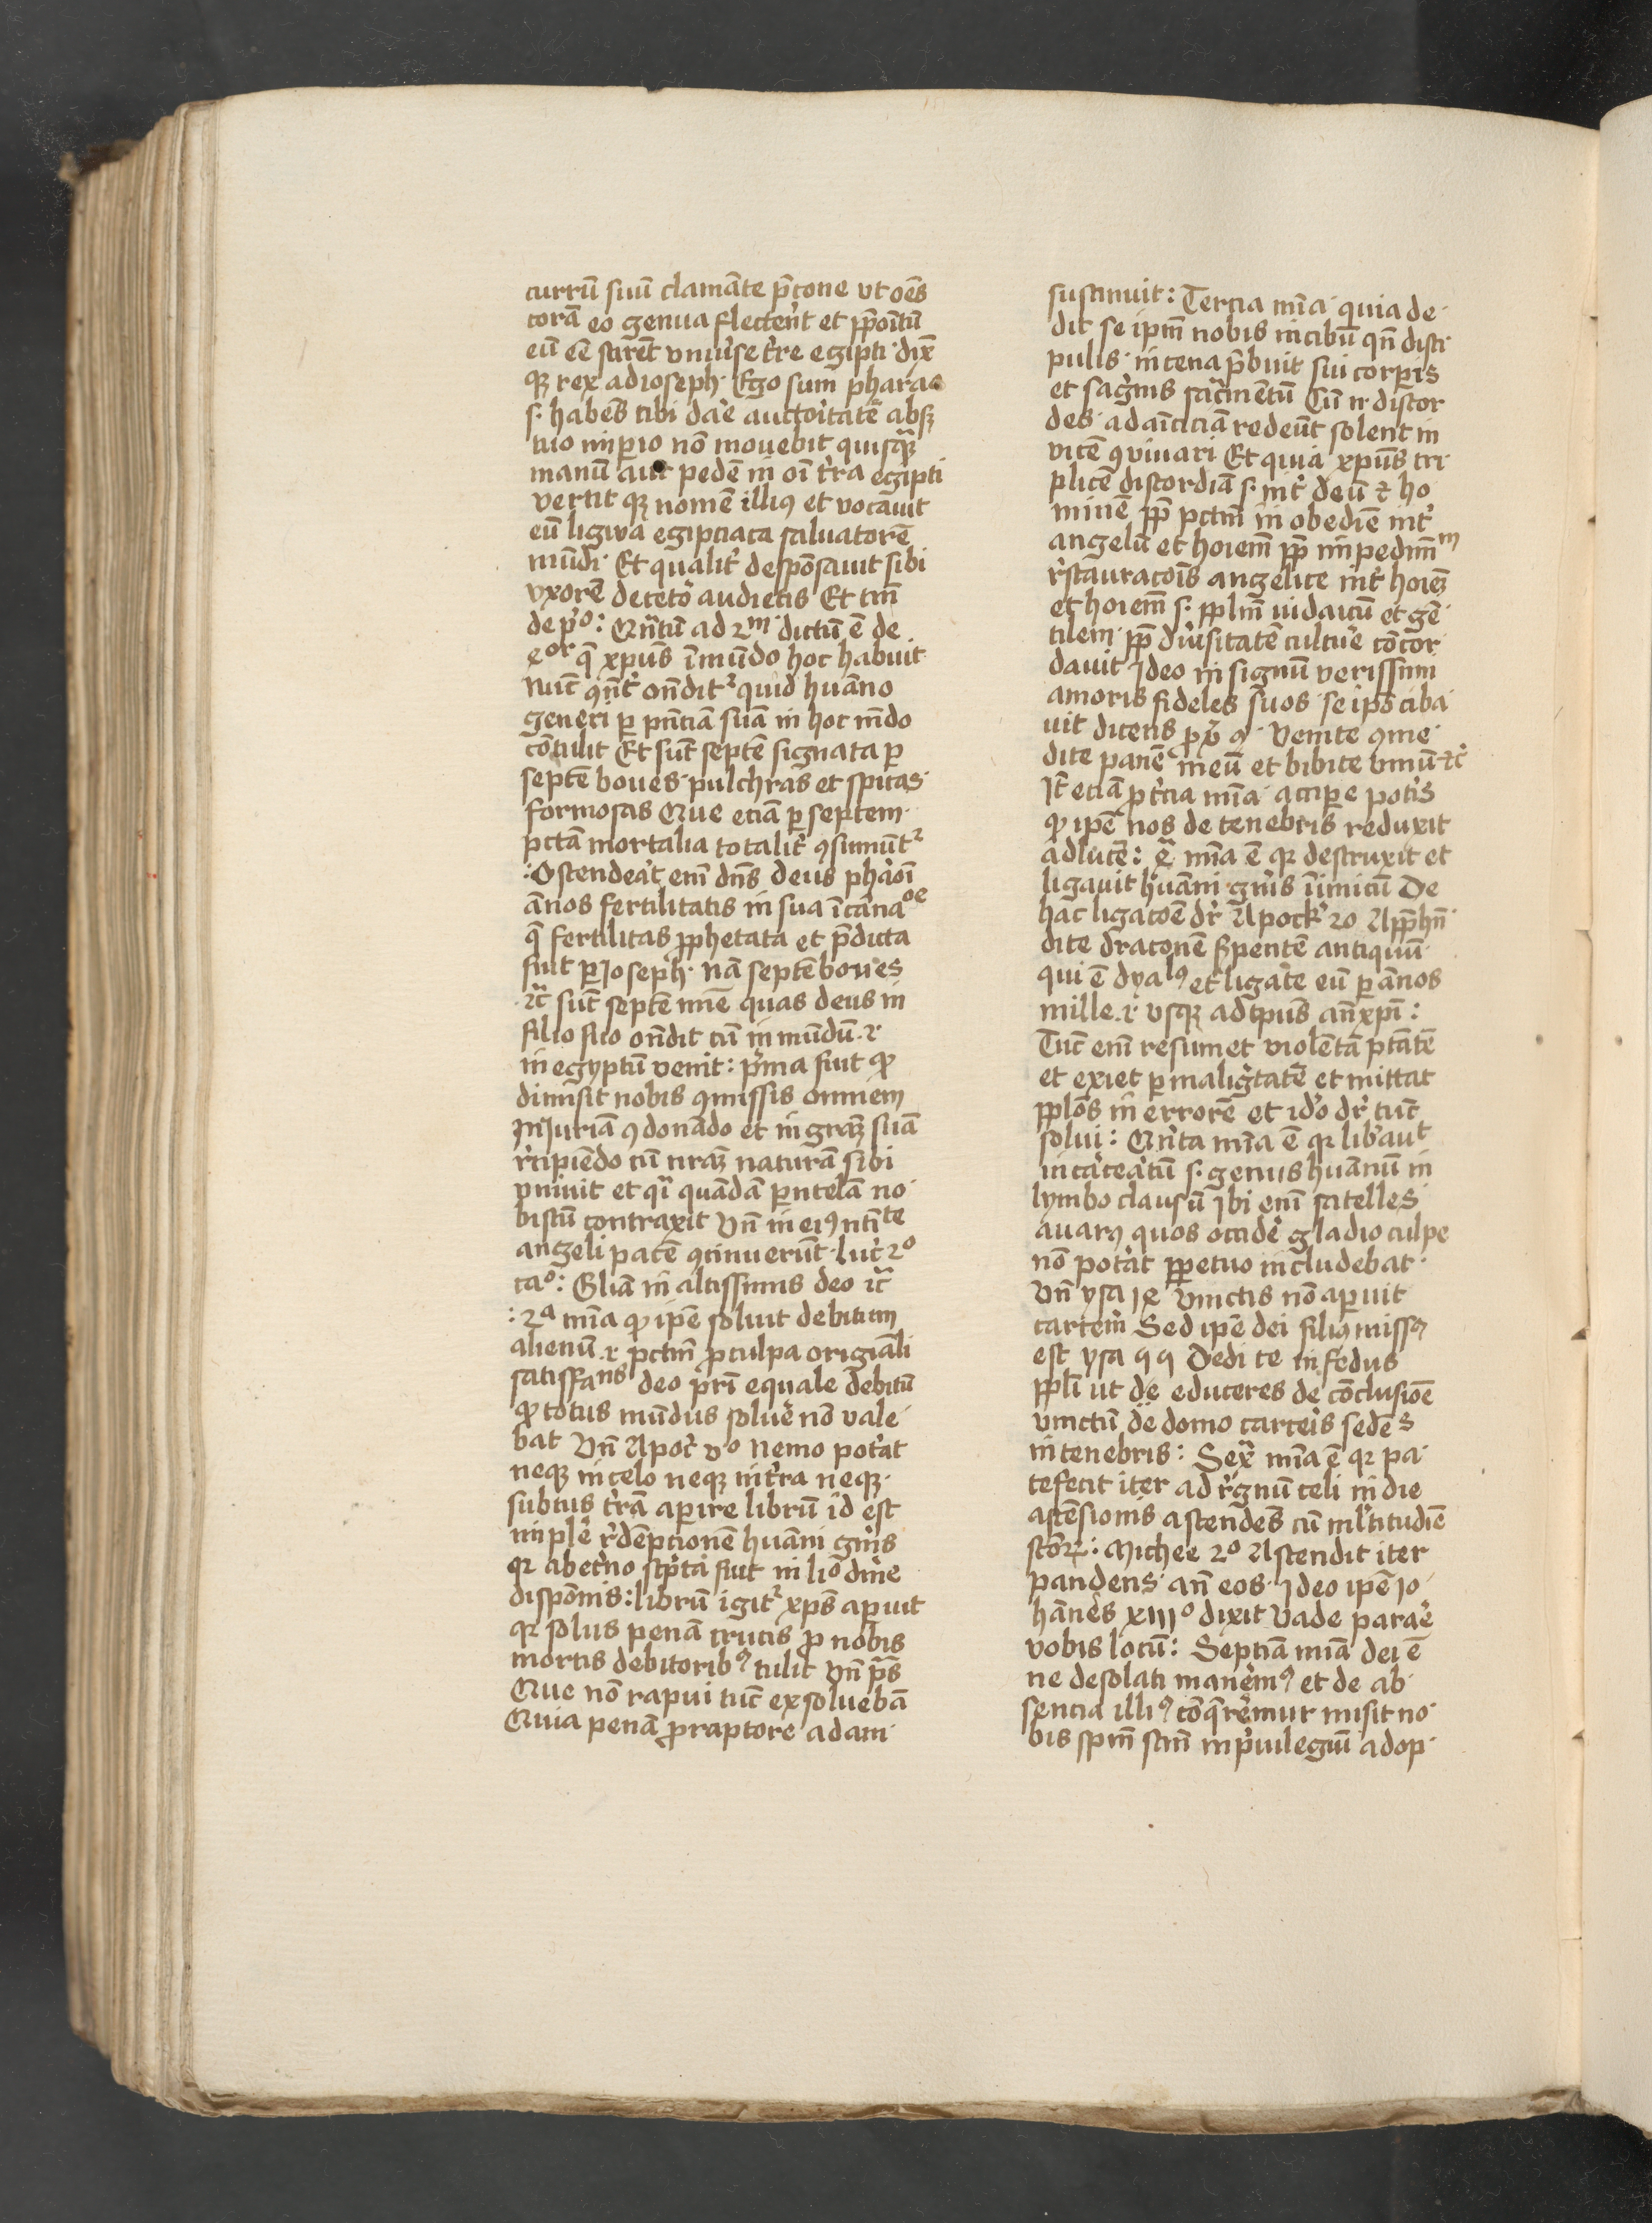 currū suū clamāte p̄cone vt oēs
corā eo genua flecteñt et p̄poītū
eū eē scirēt vniuˀse tˀre egipti · dix̄
qȝ rex ad ioseph · Ego sum pharao
s. habes tibi daˀe auctoītatē absqȝ
tuo imp̲io nō mouebit quisq̄ȝ
manū aut pedē in oī tˀra egipti
vertit qȝ nomē illiꝰ et vocauit
eū ligwa egipciaca saluatorē
mūdi · Et qualitˀ despōsauit sibi
vxorē de cetˀo audietis Et tm̄
de pˀo : Qn̄tū ad 2m dictū ē de
4or q̄ xpūs ī mūdo hoc habuit
Nūc ꝯn̄tˀ on̄dit² quid huāno
generi p̲ pn̄ciā suā in hoc mūdo
cōtulit Et sūt septē signata p̲
septē boues · pulchras et spicas ·
formosas Que eciā p̲ septem ·
pctā mortalia totalitˀ ꝯsumūt²
: Ostenderat em̄ dn̄s deus pharaoī
ānos fertilitatis in sua īcarnaoe
q̄ fertilitas p̲phetata et p̄dicta
fuit p̲ Ioseph · nā septē boues
· ꝛc̄ sūt septē mīe quas deus in
filio suo on̄dit cū in mūdū · ꝛ
in egyptū venit : pˀma fuit qꝫ
dimisit nobis ꝯmissis omnem
Iniuriā ꝯdonādo et in grāȝ suā
rˀcipiēdo cū nrāȝ naturā sibi
vniuit et qˀ quādā p̲ntelā no ·
biscū contraxit Vn̄ in eiꝰ nti͞te
angeli pacē ꝯcinuerūt · luc̄ 2o
cao : Gl̄iā in altissimis deo ꝛc̄
: 2a mīa qꝫ ip̄e soluit debitum
alienū · ꝛ pctm̄ p̲ culpa origīali
satisffans deo pr̄i equale debitū
qꝫ totus mūdus soluˀe nō vale ·
bat Vn̄ Apoc̄ vo Nemo potˀat
neqȝ in celo neqȝ in tˀra neqȝ ·
subtus tˀrā ap̲ire librū id est
implˀe rˀdēptionē huāni gn̄is
qꝛ ab etˀno scˀpta fuit in liƀo diuīe
dispōnis : librū igit² xp̄s ap̲uit
qꝛ solus penā crucis p̲ nobis
mortis debitoribꝰ tulit Vn̄ p̄s
Que nō rapui tūc exsoluebā
Quia penā p̲ raptore adam ·
sustinuit : Tercia mīa · quia de ·
dit se ipm̄ nobis in cibū qn̄ disci ·
pulis · in cena p̄buit sui corp̲is
et sagˀnis sacˀmētū Cū n · discor
des · ad aīciciā redeūt solent in
vicē ꝯviuari Et quia xpūs tri ·
plicē discordiā s. intˀ deū ꝛ ho
minē p̲p̄ pctm̄ in obediē intˀ
angelū et hoīem p̲p̄ impedim̄m
rˀstauracoīs angelice intˀ hoīeȝ
et hoīem s. pplm̄ iudaicū et gē ·
tilem · p̲p̄ diuˀsitatē cultuˀe cōcor ·
dauit Ideo in signū verissim
amoris fideles suos · se ipō ciba ·
uit dicens p̲uˀ 9 · Venite ꝯme ·
dite panē meū et bibite vinū ꝛc̄
It̄ eciā p̲ tˀcia mīa · accip̲e potˀis
qꝫ ip̄e nos de tenebris reduxit
ad lucē : 4a mīa ē qꝛ destruxit et
ligauit huāni gn̄is īimicū De
hac ligacoē dr̄ Apock̄ 20 App̲hn̄ ·
dite draconē sp̲entē antiquū ·
qui ē dyalꝰ et ligate eū p̲ ānos
mille · ꝛ vsqȝ ad tp̄us an̄xpī :
Tūc em̄ resumet violētā ptātē
et exiet p̲ maligtatē et mittat
pplōs in errorē et idˀo dr̄ tūc
solui : Qn̄ta mīa ē qꝛ libˀaut
incarceatū s. genus huānū in
lymbo clausū Ibi em̄ satelles ·
auarꝰ quos occidˀe gladio culpe
nō potˀat p̲petuo includebat ·
Vn̄ ysa 14 Vinctis nō ap̲uit
carcem Sed ip̄e dei filiꝰ missꝰ
est ysa 49 Dedi te in fedus
ppl̄i ut de educeres de cōclusiōe
vinctū de domo carceis sedēs
in tenebris : Sex̄ mīa ē qꝛ pa ·
tefecit iter ad rˀgnū celi in die
ascēsionis ascendēs cū ml̄titudīe
scōꝝ : Michee 2o Ascendit iter
pandens · an̄ eos · Ideo ip̄e Io ·
hānes xiiio dixit Vade paraˀe
vobis locū : Septīa mīa dei ē
ne desolati manemˀꝰ et de ab ·
sencia illiꝰ cōq̄remur misit no ·
bis spm̄ scm̄ in pˀuilegiū adop ·